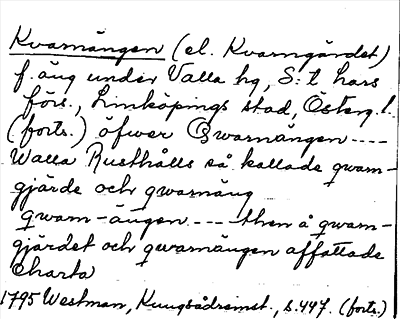 Kvarnängen (el. Kvarngärdet)
f. äng under Valla hg, S:t Lars
förs., Linköpings stad, Österg. l.
(forts.) öfwer Qwarnängen ----
Walla Rusthålls så kallade qwarn-
gjärde och qwarnäng
qwarn-ängen ---- then å qwarn-
gjärdet och qwarnängen affattade
Charta
1795 Westman, Kungsådreinst., s. 447. (forts.)